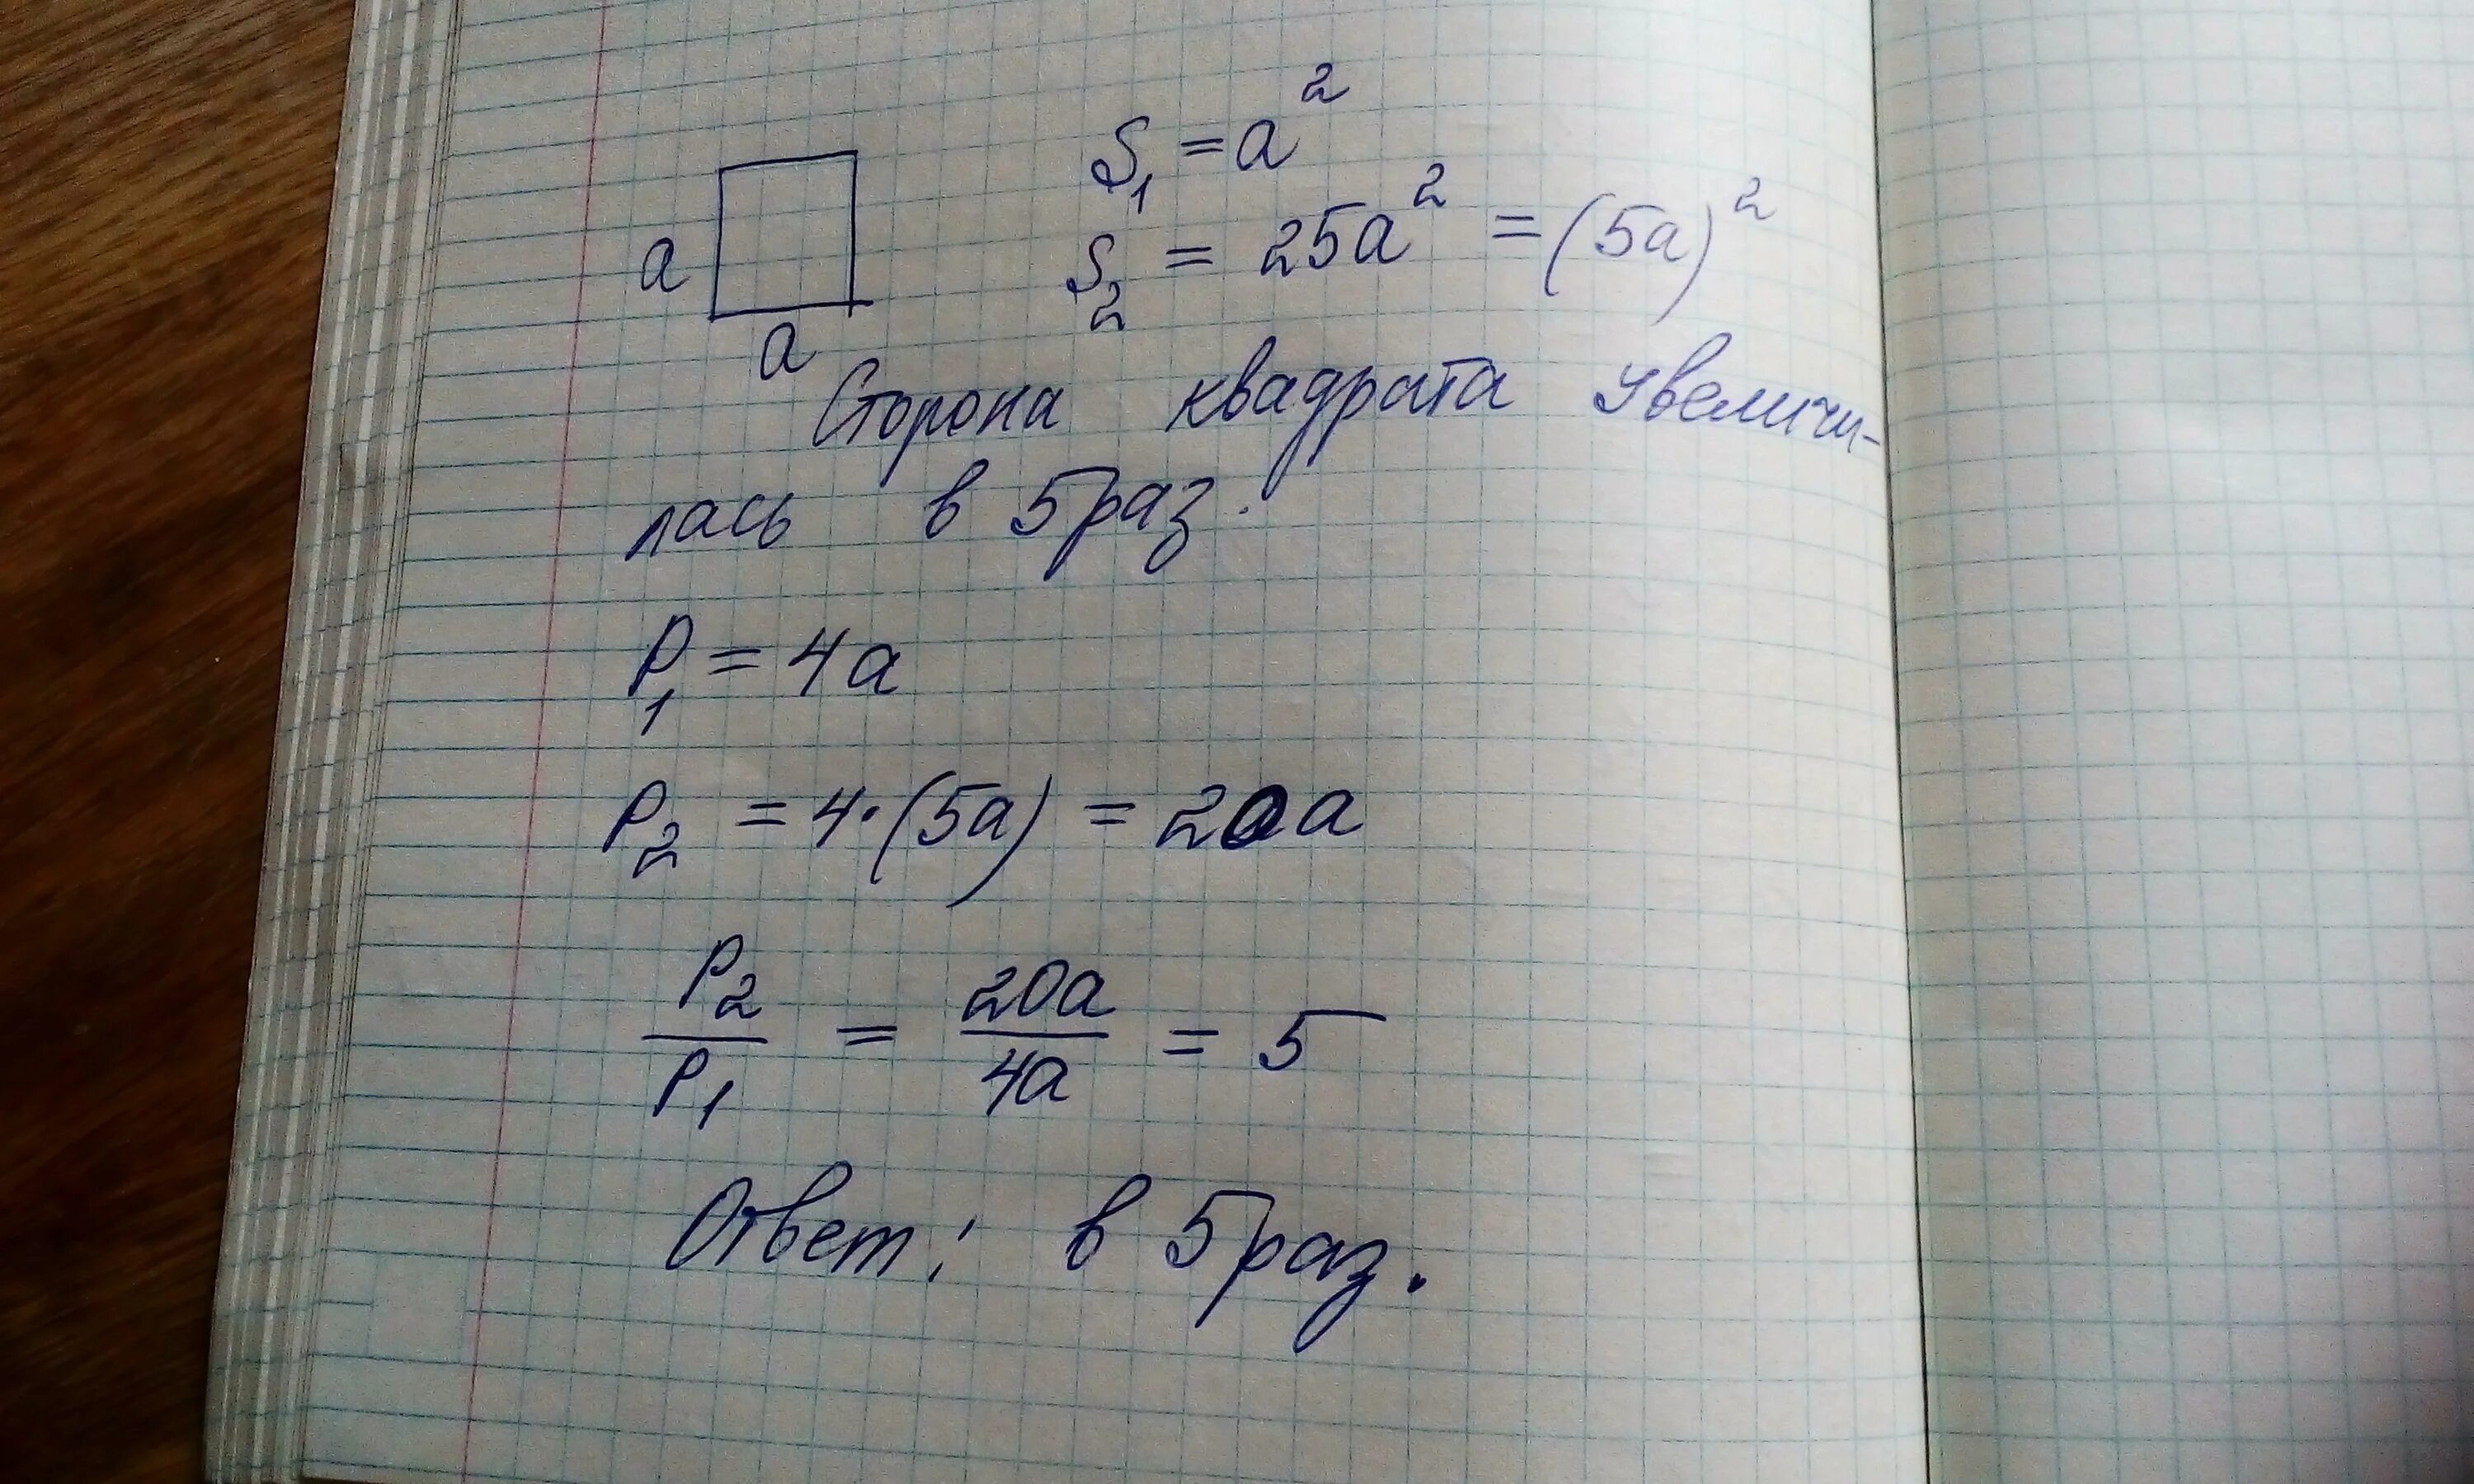 S₁ = a²
a
S₂ = 25a² = (5a)²
a
Сторона квадрата увеличи-
лась в 5 раз.
P₁ = 4a
P₂ = 4·(5a) = 20a
P₂/P₁ = 20a/4a = 5
Ответ: в 5 раз.